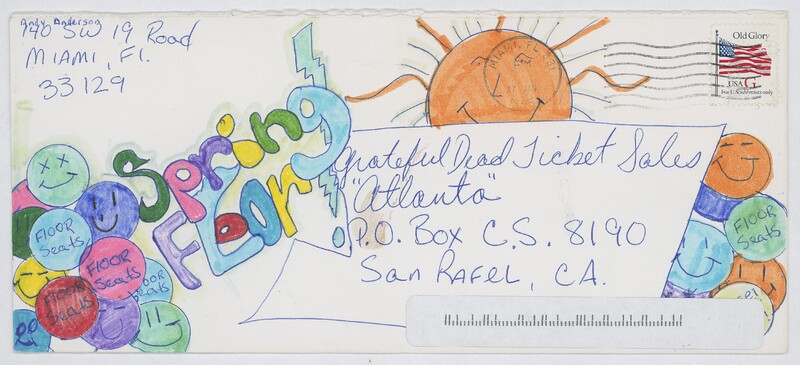 Andy Anderson
740 SW 19 Road
MIAMI, Fl.
33129
Spring
FLoory!
Grateful Dead Ticket Sales
"Atlanta"
P.O. Box C.S. 8190
San Rafel, CA.
Old Glory
USA G
For U.S. addresses only
MIAMI, FL
FlOOR
Seats
FlOOR
Seats
FlOOR
Seats
FlOOR
Seats
FlOOR
Seats